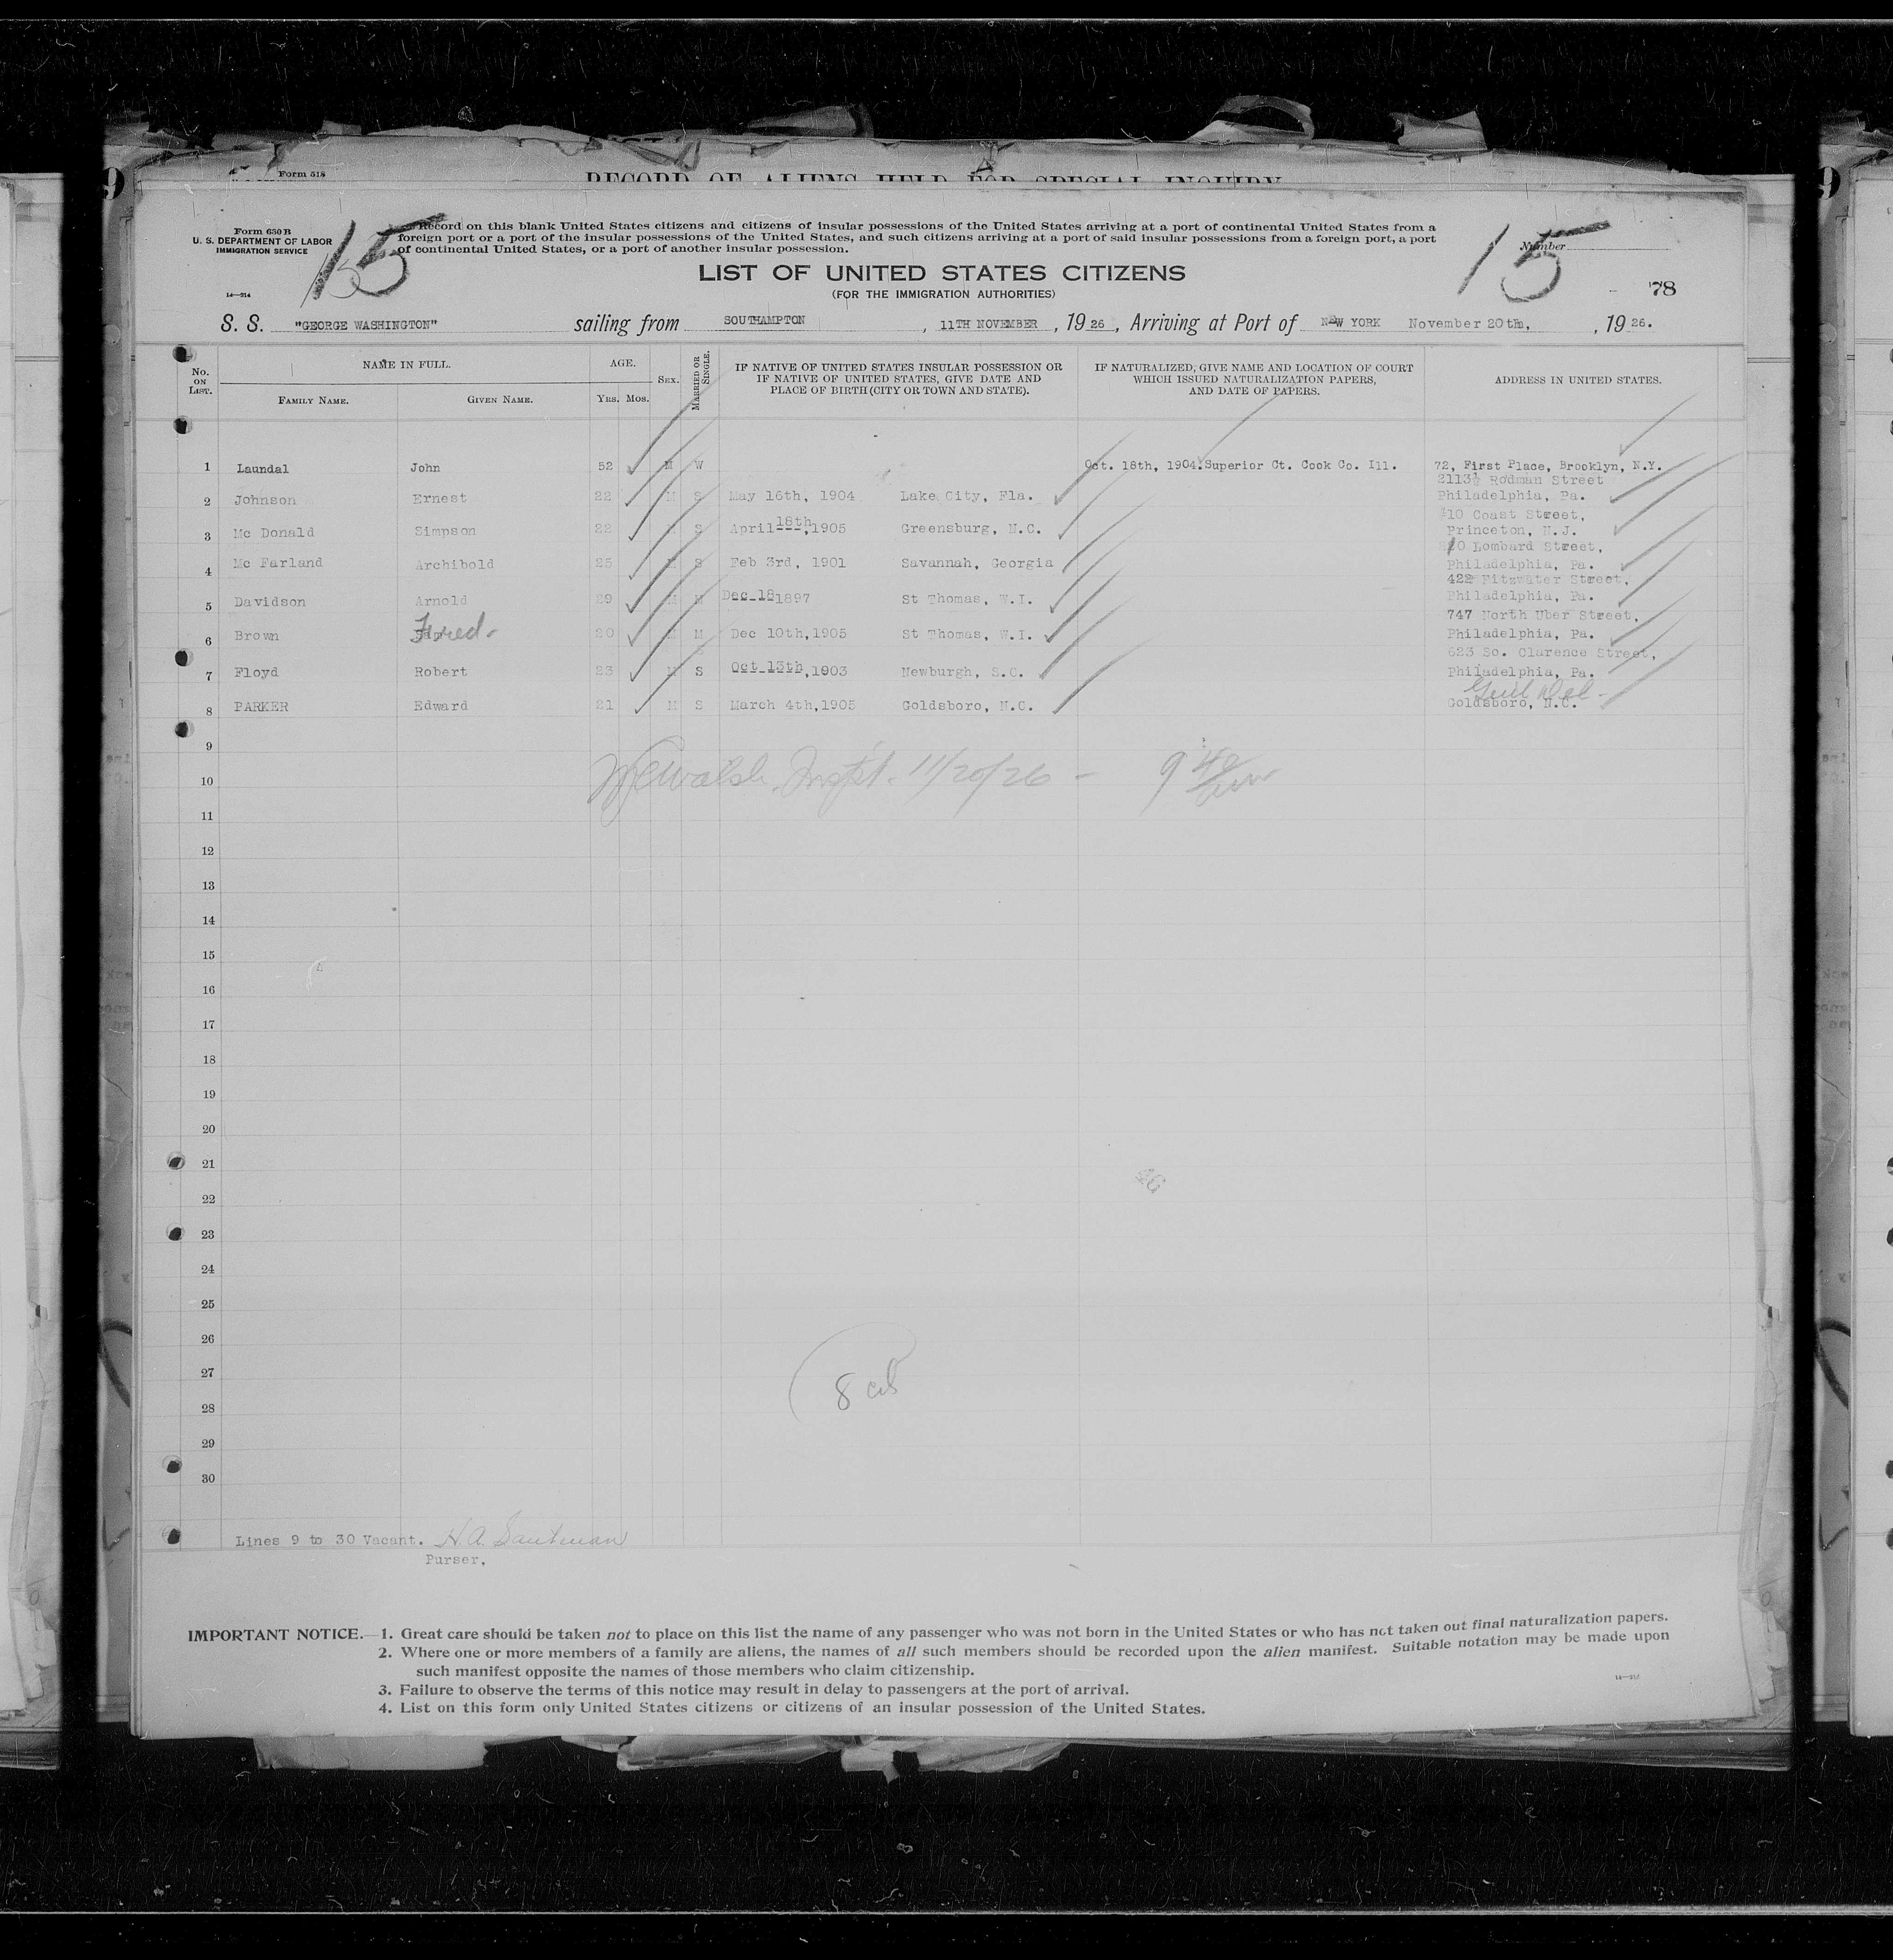 Form 518
RECORD OF ALIENS HELD FOR SPECIAL INQUIRY
Form 630 B
U. S. DEPARTMENT OF LABOR
IMMIGRATION SERVICE
14—214
15
Record on this blank United States citizens and citizens of insular possessions of the United States arriving at a port of continental United States from a
foreign port or a port of the insular possessions of the United States, and such citizens arriving at a port of said insular possessions from a foreign port, a port
of continental United States, or a port of another insular possession.
Number
15
78
LIST OF UNITED STATES CITIZENS
(FOR THE IMMIGRATION AUTHORITIES)
S. S. "GEORGE WASHINGTON" sailing from SOUTHAMPTON, 11TH NOVEMBER, 1926, Arriving at Port of NEW YORK November 20th, , 1926.
No. ON LIST. NAME IN FULL. AGE. SEX. MARRIED OR SINGLE. IF NATIVE OF UNITED STATES INSULAR POSSESSION OR IF NATIVE OF UNITED STATES, GIVE DATE AND PLACE OF BIRTH (CITY OR TOWN AND STATE). IF NATURALIZED, GIVE NAME AND LOCATION OF COURT WHICH ISSUED NATURALIZATION PAPERS, AND DATE OF PAPERS. ADDRESS IN UNITED STATES.
FAMILY NAME. GIVEN NAME. YRS. MOS.
1 Laundal John 52 M W Oct. 18th, 1904. Superior Ct. Cook Co. Ill. 72, First Place, Brooklyn, N.Y.
2 Johnson Ernest 22 M S May 16th, 1904 Lake City, Fla. 2113½ Rodman Street Philadelphia, Pa.
3 Mc Donald Simpson 22 M S April 18th, 1905 Greensburg, N.C. 10 Coast Street, Princeton, N.J.
4 Mc Farland Archibold 25 M S Feb 3rd, 1901 Savannah, Georgia Lombard Street, Philadelphia, Pa.
5 Davidson Arnold 29 M M Dec 18 1897 St Thomas, W.I. 422 Fitzwater Street, Philadelphia, Pa.
6 Brown Fred 20 M M Dec 10th, 1905 St Thomas, W.I. 747 North Uber Street, Philadelphia, Pa.
7 Floyd Robert 23 M S Oct 13th, 1903 Newburgh, S.C. 623 So. Clarence Street, Philadelphia, Pa.
8 PARKER Edward 21 M S March 4th, 1905 Goldsboro, N.C. Goldsboro, N.C.
9
Walsh Inspt. 11/20/26 - 9 40
10
11
12
13
14
15
16
17
18
19
20
21
22
23
24
25
26
27
8
28
29
30
Lines 9 to 30 Vacant. H.A. Sautman
Purser,
IMPORTANT NOTICE.—1. Great care should be taken not to place on this list the name of any passenger who was not born in the United States or who has not taken out final naturalization papers.
2. Where one or more members of a family are aliens, the names of all such members should be recorded upon the alien manifest. Suitable notation may be made upon
such manifest opposite the names of those members who claim citizenship.
3. Failure to observe the terms of this notice may result in delay to passengers at the port of arrival.
4. List on this form only United States citizens or citizens of an insular possession of the United States.
14—214